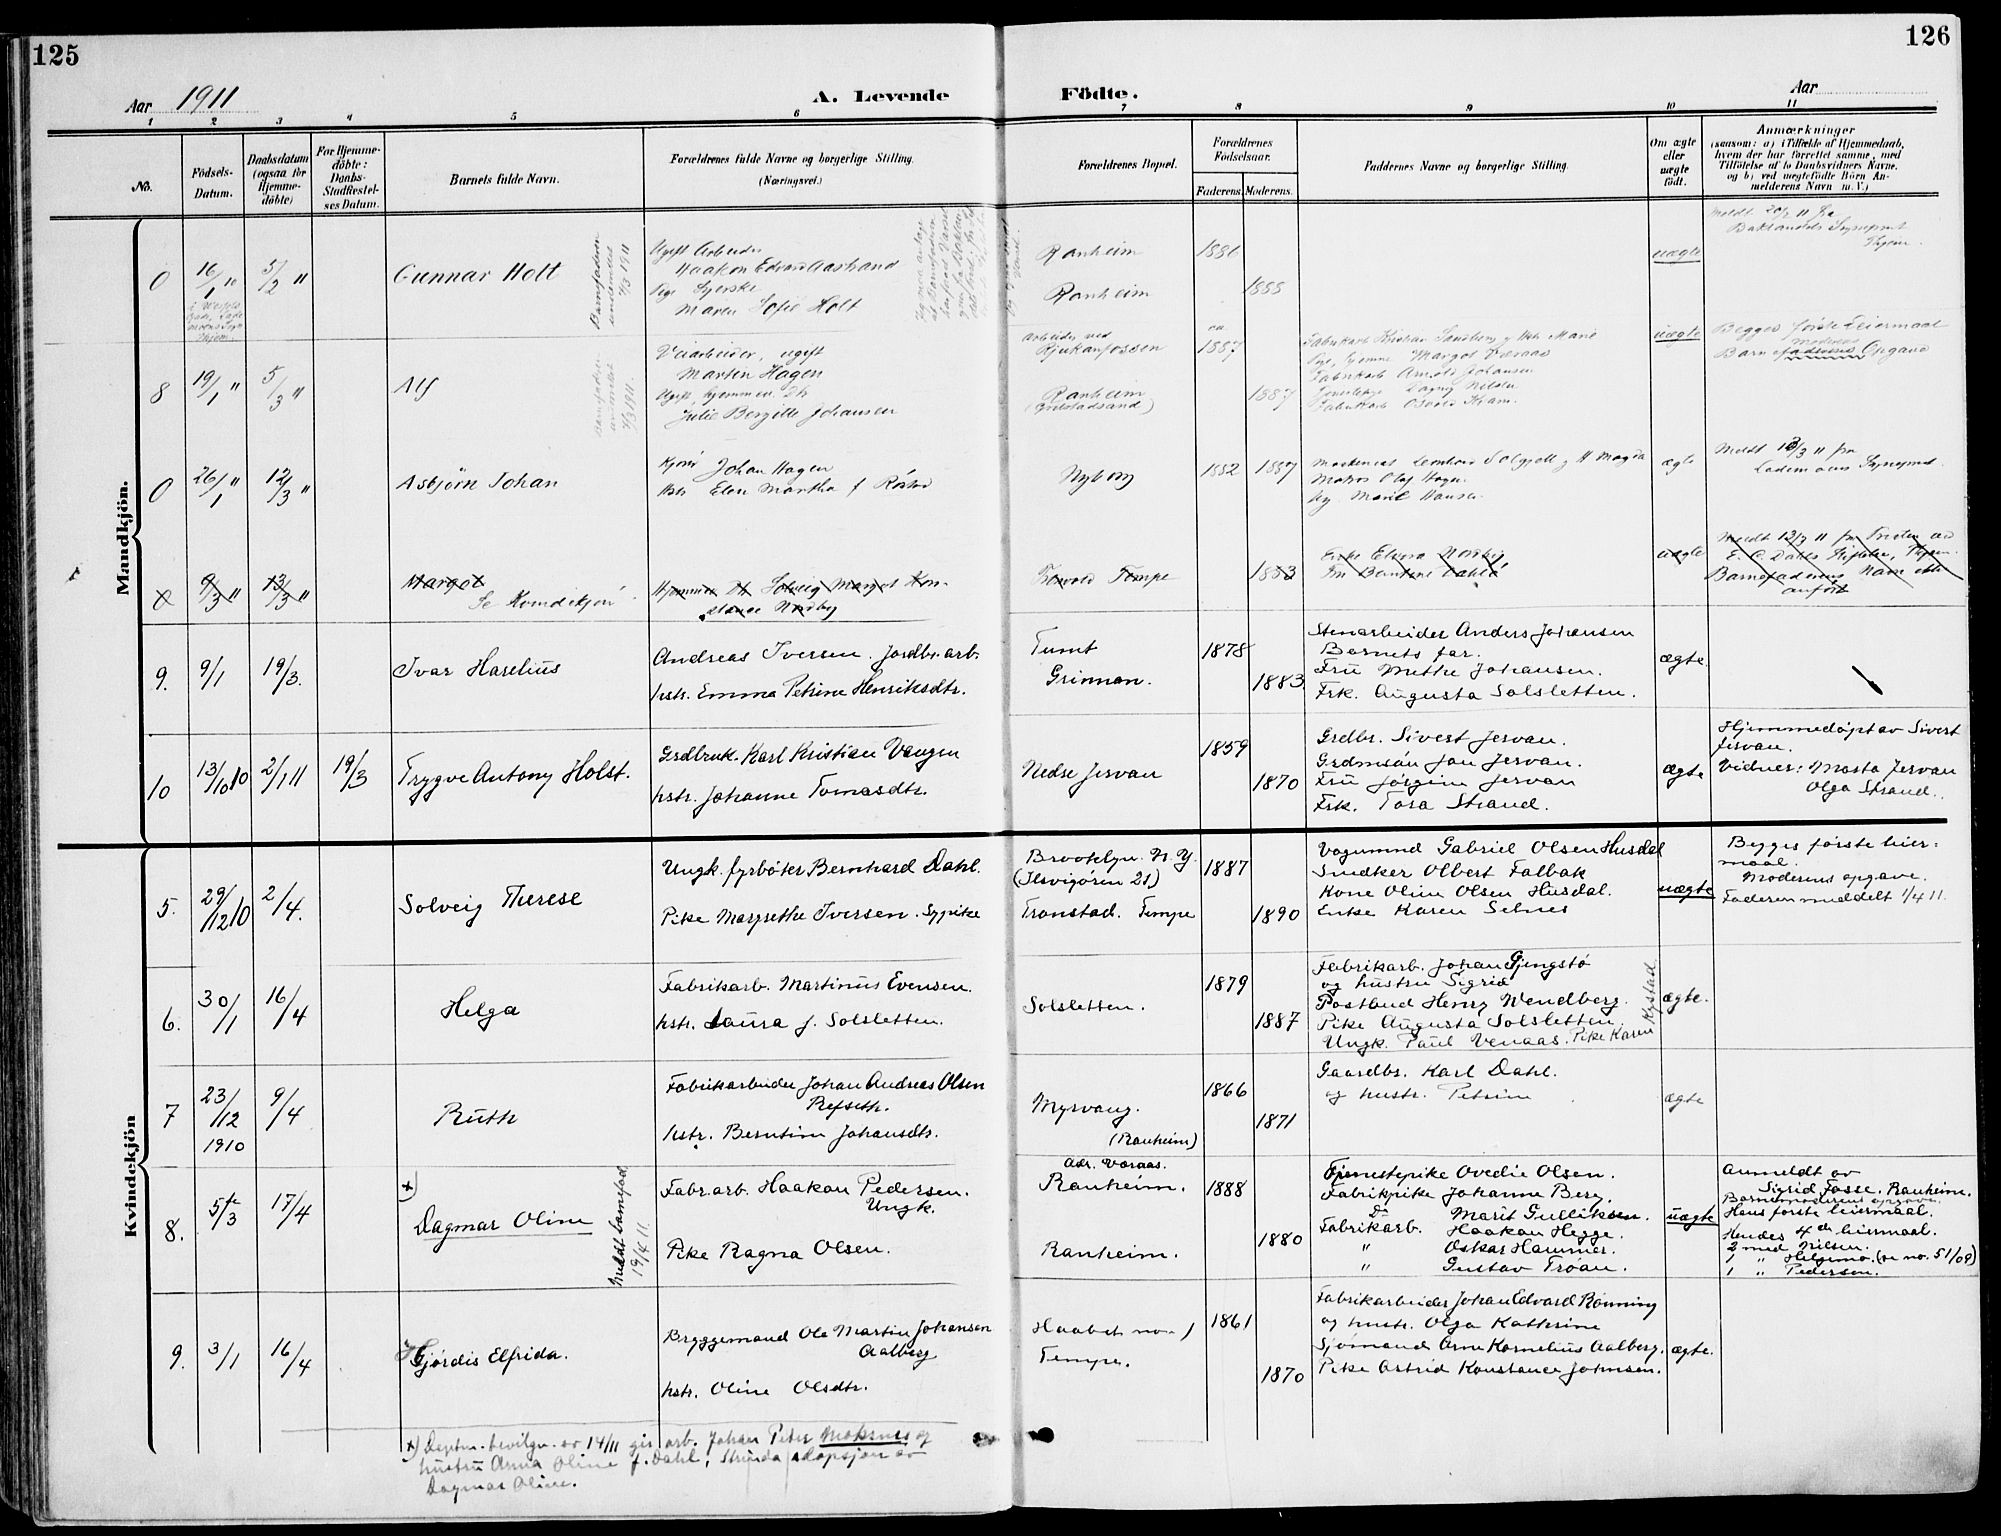 125
126
Aar 1911
A. Levende
Födte.
Aar
1
2
3
4
5
6
7
8
9
10
11
No.
Födsels-
Datum.
Daabsdatum
(ogsaa for
Hjemme-
döbte)
For Hjemme-
döbte:
Daabs-
Stadfæstel-
ses Datum.
Barnets fulde Navn.
Forældrenes fulde Navne og borgerlige Stilling.
(Næringsvei.)
Forældrenes Bopæl.
Forældrenes
Födselsaar.
Faderens.
Moderens.
Faddernes Navne og borgerlige Stilling.
Om ægte
eller
uægte
født.
Anmærkninger
(saasom: a) i Tilfælde af Hjemmedaab,
hvem der har forrettet samme, med
Tilföielse af to Daabsvidners Navne,
og b) ved uægtefödte Börn An-
melderens Navn m. V.)
Mandkjön.
0
16/1 10
5/2 "
Gunnar Holt
Barnefaderen
underrettet
/3 1911
Ugift Arbeider
Haakon Edvard Aastrand
Pige Syerske
Maren Sofie Holt
Ranheim
Ranheim
1886
1888
uægte
Meldt 20/2 11 fra
Baklandets Sognepræst
Thjem.
8
19/1 "
5/3 "
Alf
Barnefaderen
underrettet
/3 1911.
Veiarbeider, ugift
Martin Hagen
Ugift, hjemmev. Dtr
Julie Bergitte Johansen
Arbeider ved
Rjukanfossen
Ranheim
(Grilstadsand)
ca.
1887
1887
Fabrikarb Kristian Sandberg og Hstr Marie
Pige, hjemme Margot Væraas
Fabrikarb Arnold Johansen
Dagny Nilsen
Fabrikarb Osvald Kram.
uægte
Begges første Leiermaal
Moderens
Barnefaderens Opgave
0
26/1 "
12/3 "
Asbjørn Johan
Kjører Johan Hagen
Hstr Elen Martha f Røstad
Nyborg
1882
1887
Maskinist Leonhard Solgjell og H Magda
Matros Olaf Hagen
Marie Hansen
ægte
Meldt 13/3 11 fra
Lademoens Sognepræst.
8
9/3 "
13/3 "
Margot
Se Kvindekjøn
Hjemmev Dtr Solveig Margot Kon-
stance Nordby
Tronvold Tempe
1883
Enke Elvira Nordby
Fru Berntine Dahlø
uægte
Meldt 13/3 11 fra Presten ved
E. C. Dahls Stiftelse, Thjem.
Barnefaderens Navn ikke
anført
9.
9/1
19/3.
Ivar Haselius
Andreas Iversen. Jordbr. arb.
hstr. Emma Petrine Henriksdtr.
Tunet
Grinnan.
1878
1883
Stenarbeider Anders Johansen
Barnets far.
Fru Methe Johansen.
Frk. Augusta Solsletten.
ægte.
10
13/10 10
2/1 11
19/3
Trygve Antony Holst.
Grdbruk. Karl Kristian Vangen
hstr. Johanne Tomasdtr.
Nedre Jervan
1859
1870
Grdbr. Sivert Jervan.
Grdmsøn Jon Jervan.
Fru Jørgine Jervan
Frk. Tora Strand.
ægte
Hjemmedøpt av Sivert
Jervan.
Vidner: Marta Jervan
Olga Strand.
Kvindekjön
5.
29/12 10
2/4.
Solveig Therese
Ungk. fyrbøter Bernhard Dahl.
Pike Margrethe Iversen. Sypike
Brooklyn. N. Y.
(Ilsvigøren 21)
Tronstad. Tempe
1887
1890
Vognmnd Gabriel Olsen Husdal
Snedker Olbert Falbak
Kone Oline Olsen Husdal.
Enke Karen Selnes
uægte
Begges første leier-
maal.
Moderens opgave.
Faderen meddelt 1/4 11.
6.
30/1
16/4
Helga
Fabrikarb. Martinus Evensen.
hstr. Laura f. Solsletten.
Solsletten.
1879
1887
Fabrikarb. Johan Gjengstø
og hustru Sigrid
Postbud Henry Wendberg.
Pike Augusta Solsletten
Ungk. Paul Venaas. Pike Karen
Rystad
ægte.
7
23/12
1910
9/4
Ruth
Fabrikarbeider Johan Andreas Olsen
Refseth.
hstr. Berntine Johansdtr.
Myrvang.
(Ranheim)
1866
1871
Gaardbr. Karl Dahl.
og hustr. Petrine
ægte
8.
5te/3
17/4
x)
Dagmar Oline
Meldt barnefad.
19/4 11.
Fabr.arb. Haakon Pedersen.
Ungk.
Pike Ragna Olsen.
adr. Væraas.
Ranheim.
Ranheim.
1888
1880
Tjenestepike Ovedie Olsen.
Fabrikpike Johanne Berg.
Do Marit Gulliksen.
Fabrikarb. Haakon Hegge.
" Oskar Hammer.
" Gustav Troan.
uægte
Anmeldt av
Sigrid Fosse. Ranheim.
Barnemoderens opgave.
Hans første leiermaal.
Hendes 4de leiermaal.
2 med Nilsen.
1 " Helgemo. (se no. 51/09)
1 " Pedersen.
9.
3/1
16/4
Hjørdis Elfrida.
Bryggemand Ole Martin Johansen
Aalberg
hstr. Oline Olsdtr.
Haabet no. 1
Tempe.
1861
1870
Fabrikarbeider Johan Edvard Rønning
og hustr. Olga Kathrine
Sjømand Arne Kornelius Aalberg.
Pike Astrid Konstance Johnsen.
ægte.
x) Deptm. bevilgn. av 14/11 gir arb. Johan Peter Moksnes og
hustru Anna Oline f. Dahl, Strinda adopsjon av
Dagmar Oline.